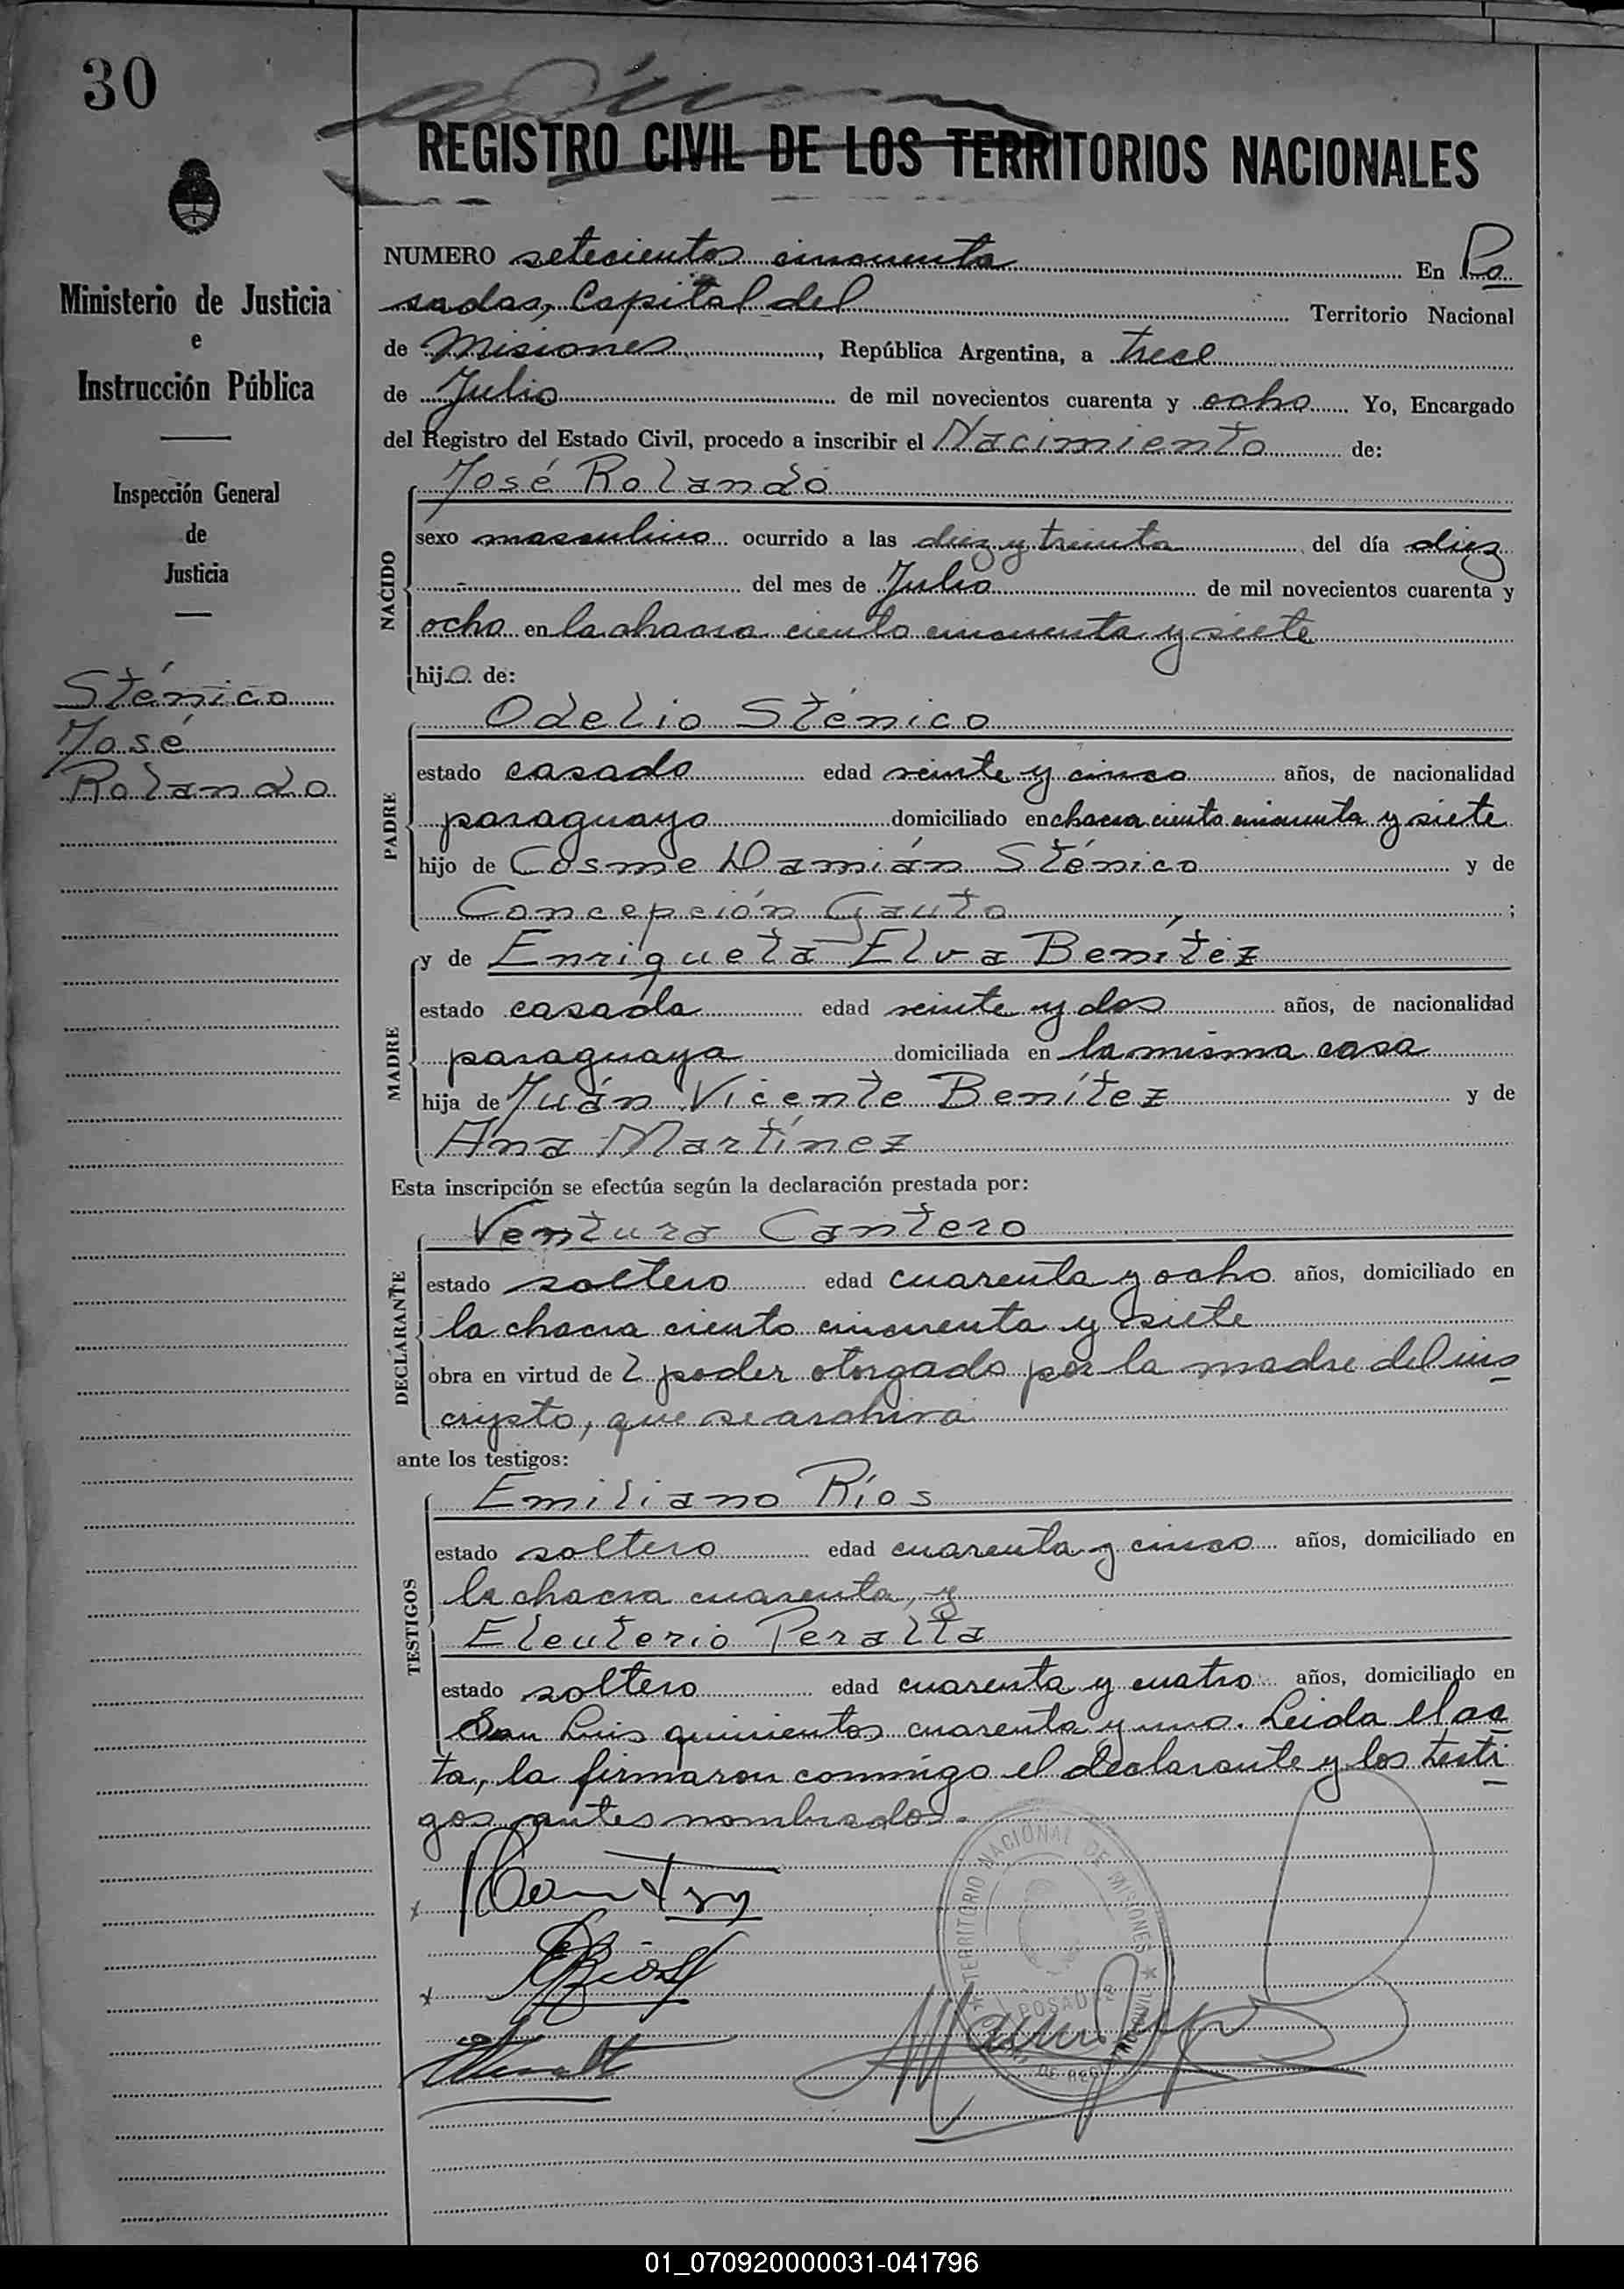 30
REGISTRO CIVIL DE LOS TERRITORIOS NACIONALES
Ministerio de Justicia
e
Instrucción Pública
Inspección General
de
Justicia
Sténico
José
Rolando
NUMERO setecientos cincuenta En Po
sadas, Capital del Territorio Nacional
de Misiones, República Argentina, a trece
de Julio de mil novecientos cuarenta y ocho Yo, Encargado
del Registro del Estado Civil, procedo a inscribir el Nacimiento de:
NACIDO
José Rolando
sexo masculino ocurrido a las diez y treinta del día diez
- del mes de Julio de mil novecientos cuarenta y
ocho en la chacra ciento cincuenta y siete
hijo de:
PADRE
Odelio Sténico
estado casado edad veinte y cinco años, de nacionalidad
paraguayo domiciliado en chacra ciento cincuenta y siete
hijo de Cosme Damián Sténico y de
Concepción Gauto ;
MADRE
y de Enriqueta Elva Benítez
estado casada edad veinte y dos años, de nacionalidad
paraguaya domiciliada en la misma casa
hija de Juán Vicente Benítez y de
Ana Martínez
Esta inscripción se efectúa según la declaración prestada por:
DECLARANTE
Ventura Cantero
estado soltero edad cuarenta y ocho años, domiciliado en
la chacra ciento cincuenta y siete
obra en virtud de poder otorgado por la madre del ins
cripto, que se archiva
ante los testigos:
TESTIGOS
Emiliano Ríos
estado soltero edad cuarenta y cinco años, domiciliado en
la chacra cuarenta, y
Eleuterio Peralta
estado soltero edad cuarenta y cuatro años, domiciliado en
San Luis quinientos cuarenta y uno. Leida el ac
ta, la firmaron conmigo el declarante y los testi
gos antes nombrados.
TERRITORIO NACIONAL DE MISIONES
POSADAS
01_070920000031-041796